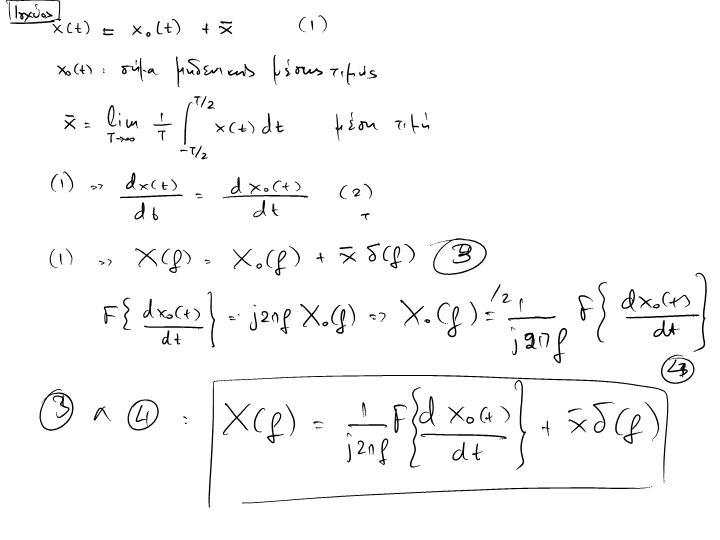 Ισχύει
x(t) = x₀(t) + x̄ (1)
x₀(t): σήμα μηδενικής μέσης τιμής
x̄ = lim_{T→∞} 1/T ∫_{-T/2}^{T/2} x(t) dt μέση τιμή
(1) => dx(t)/dt = dx₀(t)/dt (2)
(1) => X(f) = X₀(f) + x̄ δ(f) (3)
F{dx₀(t)/dt} = j2πf X₀(f) => X₀(f) = 1/(j2πf) F{dx₀(t)/dt}
(4)
(3) ∧ (4) : X(f) = 1/(j2πf) F{dx₀(t)/dt} + x̄ δ(f)